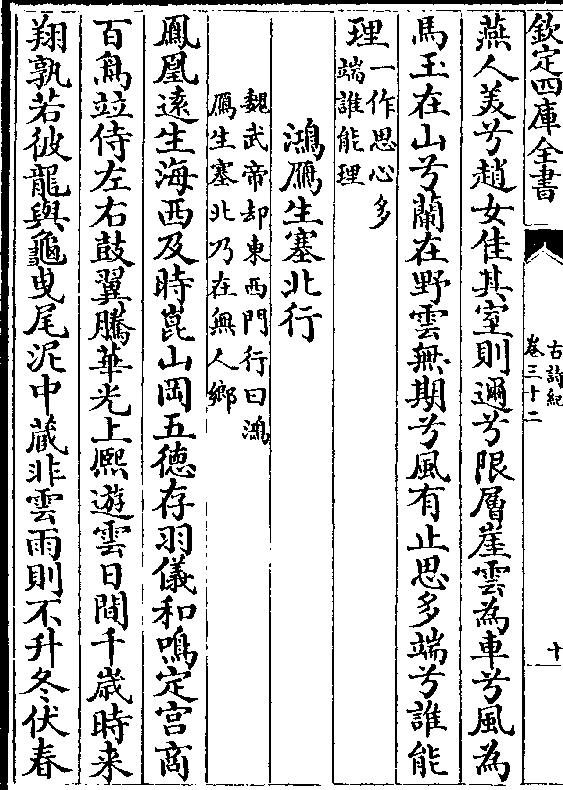 欽定四庫全書
古詩紀
卷三十二
十
燕人美兮趙女佳其室則邇兮限層崖雲為車兮風為
馬玉在山兮蘭在野雲無期兮風有止思多端兮誰能
理
一作思心多
端誰能理
鴻鴈生塞北行
魏武帝却東西門行曰鴻
鴈生塞北乃在無人鄉
鳳凰逺生海西及時崑山岡五德存羽儀和鳴定宫商
百鳥竝侍左右鼓翼騰華光上熈遊雲日間千歲時来
翔孰若彼龍與龜曳尾泥中蔵非雲雨則不升冬伏春